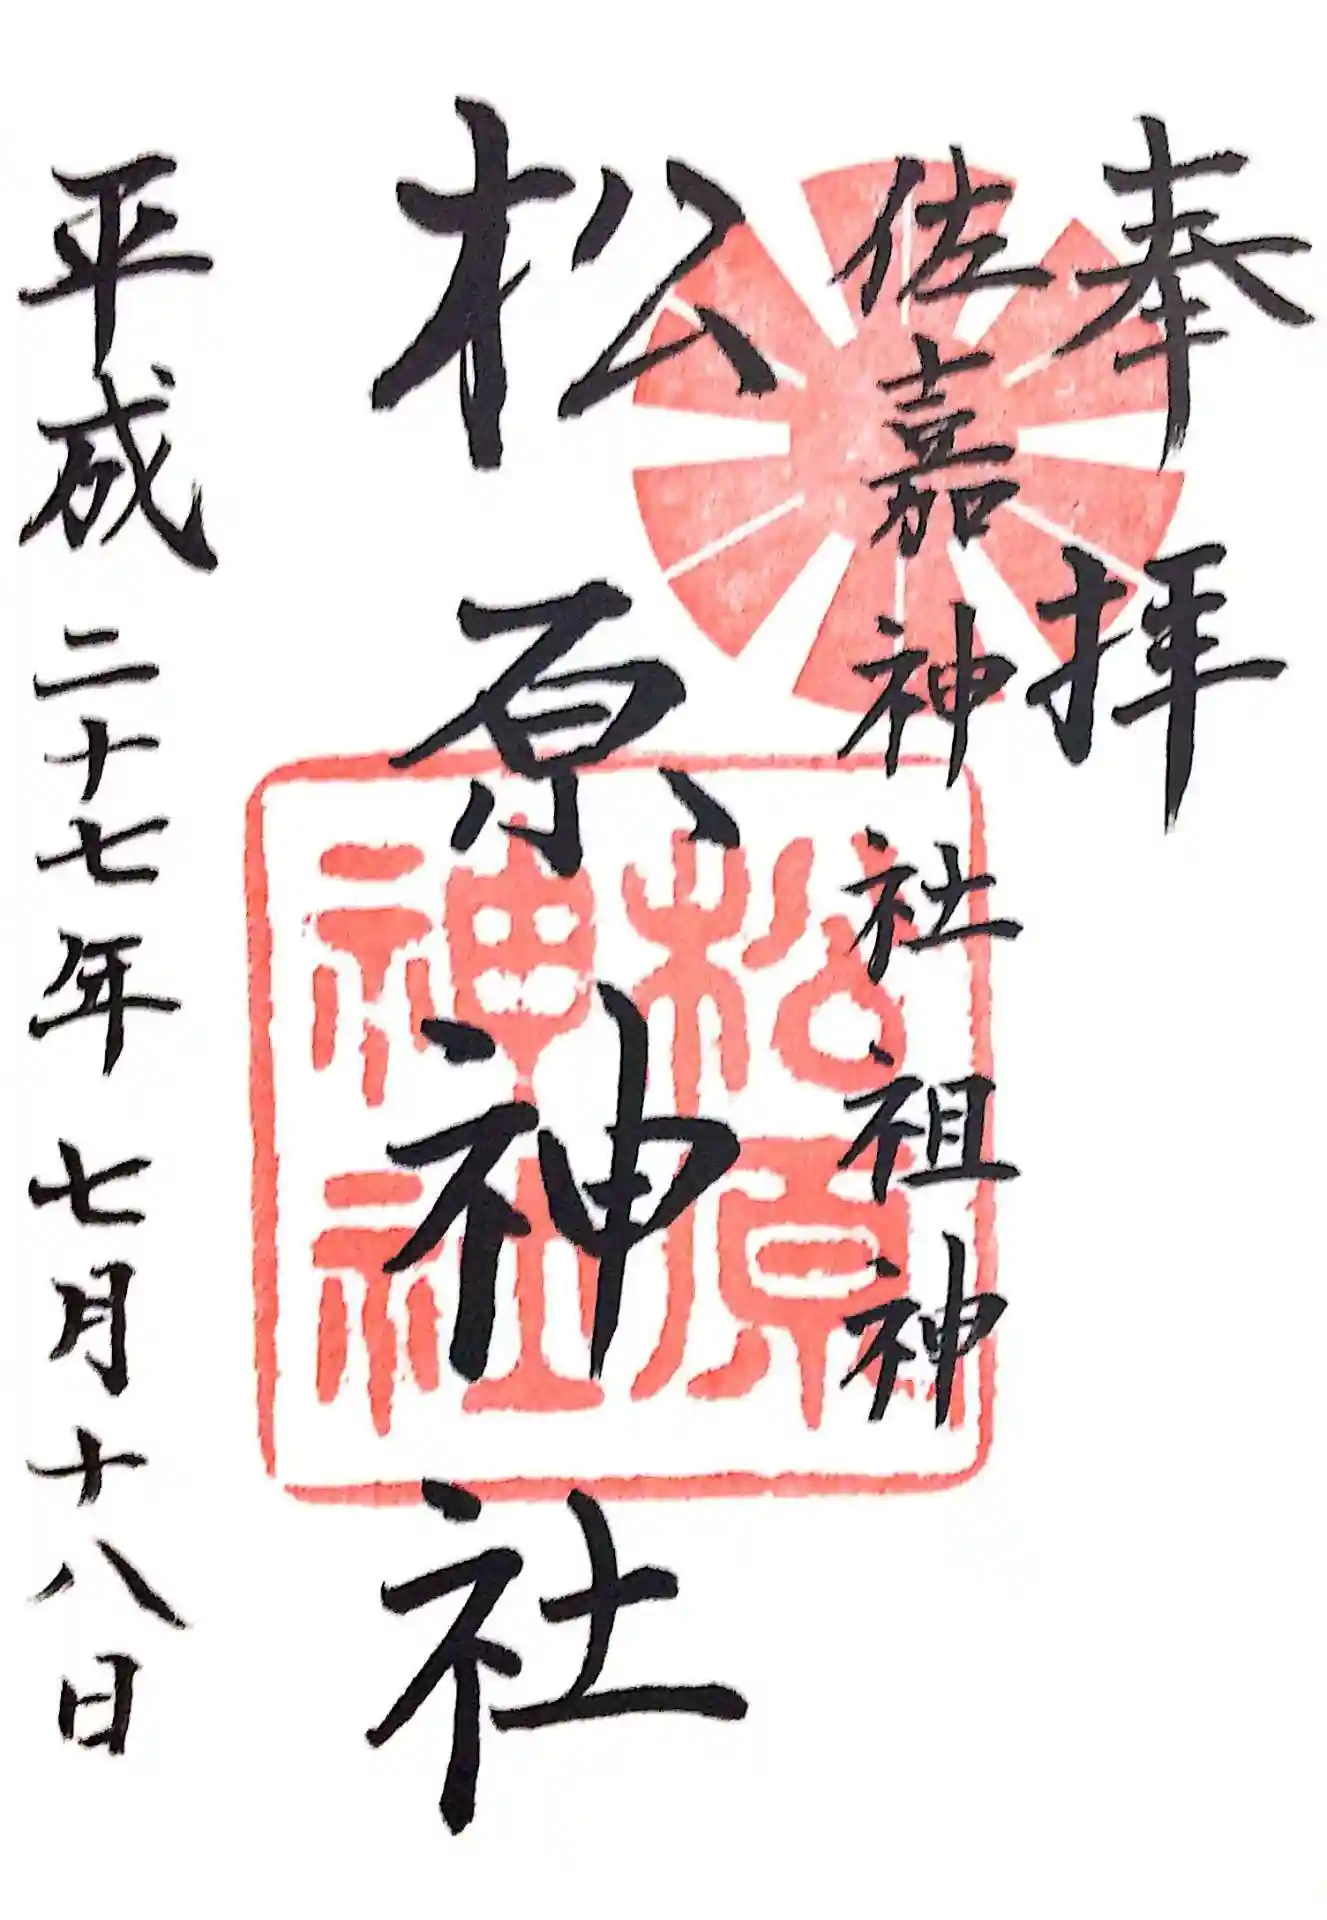 奉拝
佐嘉神社祖神
松原神社
平成二十七年七月十八日
松原
神社